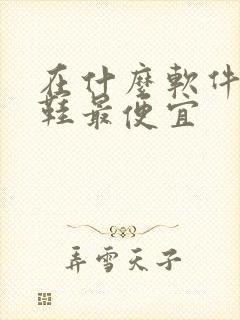 在什麼軟件
鞋最便宜
弄雪天子